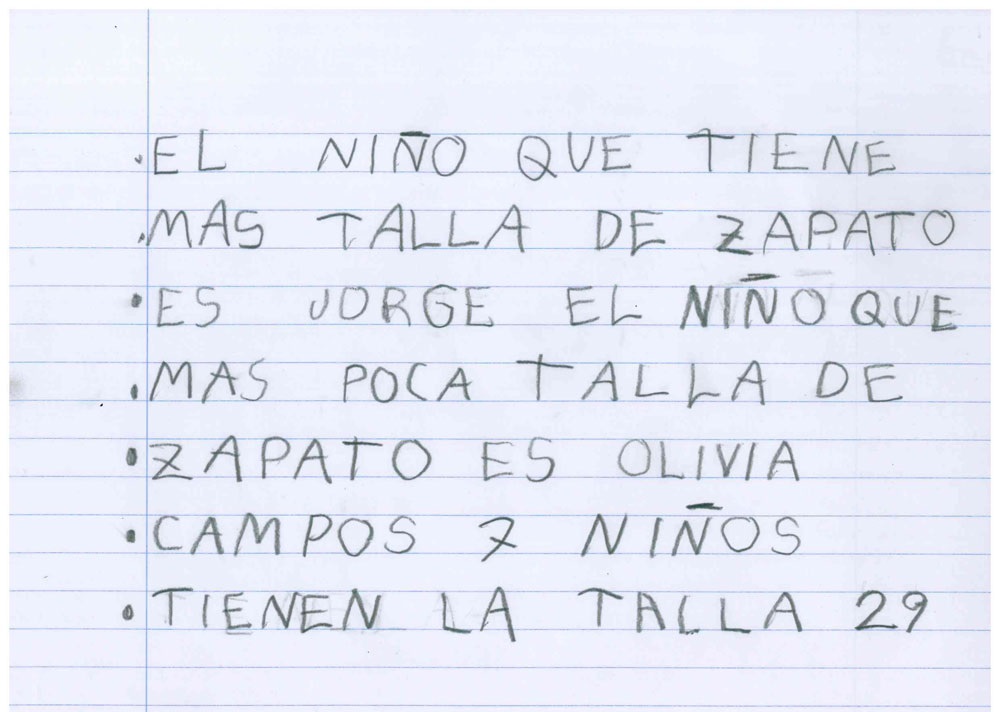 .EL NIÑO QUE TIENE
.MAS TALLA DE ZAPATO
•ES JORGE EL NIÑO QUE
.MAS POCA TALLA DE
•ZAPATO ES OLIVIA
•CAMPOS 7 NIÑOS
•TIENEN LA TALLA 29